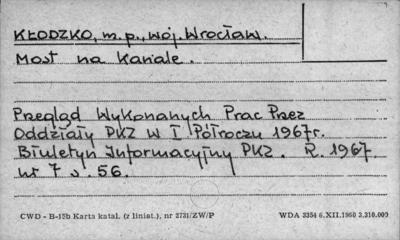 KŁODZKO, m.p., woj. Wrocław.
Most na Kanale.
Przegląd Wykonanych Prac Przez
Oddziały PKZ w I Półroczu 1967r.
Biuletyn Informacyjny PKZ. R. 1967.
nr 7 s. 56.
CWD - B-15b Karta katal. (z liniat.), nr 2731/ZW/P
WDA 3354 6.XII.1960 2.310.000